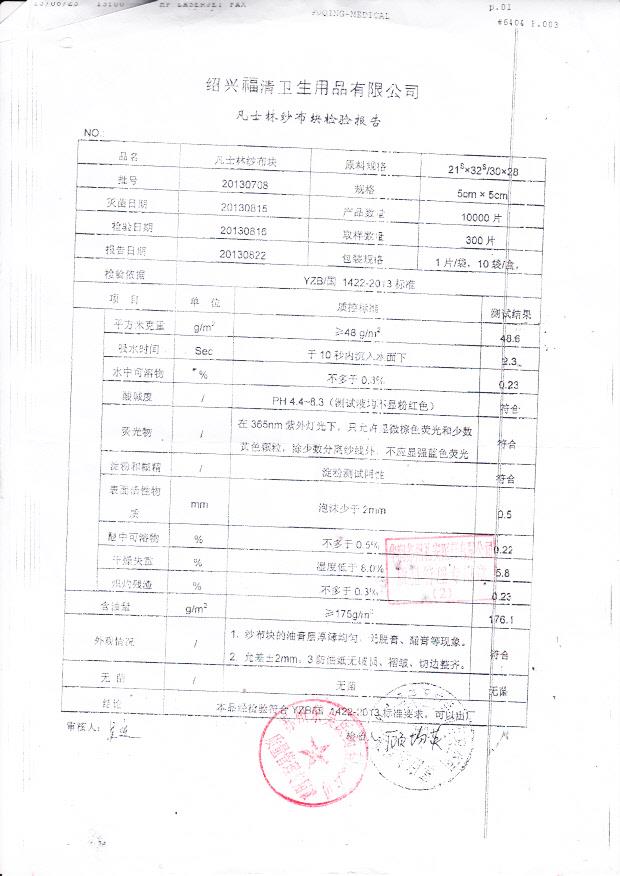 13/08/23 15:00 HP LASERJET FAX
FUQING-MEDICAL
p.01
#6404 P.003
绍兴福清卫生用品有限公司
凡士林纱布块检验报告
NO.:
品名 凡士林纱布块 原料规格 21ˢ×32ˢ/30×28
批号 20130708 规格 5cm×5cm
灭菌日期 20130815 产品数量 10000 片
检验日期 20130816 取样数量 300 片
报告日期 20130822 包装规格 1片/袋，10袋/盒。
检验依据 YZB/国 1422-2013 标准
项 目 单 位 质控标准 测试结果
平方米克重 g/m² ≥48 g/m² 48.6
吸水时间 Sec 于10秒内沉入水面下 2.3
水中可溶物 % 不多于 0.3% 0.23
酸碱度 / PH 4.4~8.3（测试液均不显粉红色） 符合
荧光物 / 在 365nm 紫外灯光下，只允许显微棕色荧光和少数
黄色颗粒，除少数分离纱线外，不应显强蓝色荧光 符合
淀粉和糊精 / 淀粉测试阴性 符合
表面活性物
质 mm 泡沫少于 2mm 0.5
醚中可溶物 % 不多于 0.5% 0.22
干燥失重 % 湿度低于 8.0% 5.8
炽灼残渣 % 不多于 0.3% 0.23
含油量 g/m² ≥175g/m² 176.1
外观情况 / 1. 纱布块的油膏层厚薄均匀，无脱膏、漏膏等现象。
2. 允差±2mm。3 防油纸无破损、褶皱、切边整齐。 符合
无 菌 / 无菌 无菌
结论 本品经检验符合 YZB/国 1422-2013 标准要求，可以出厂
审核人：
检验人
(2)